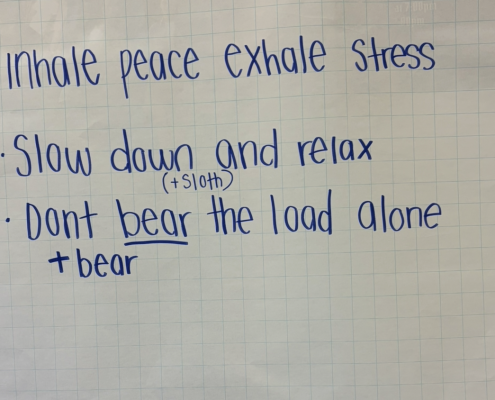 Inhale peace exhale stress
· Slow down and relax
(+Sloth)
· Dont bear the load alone
+bear